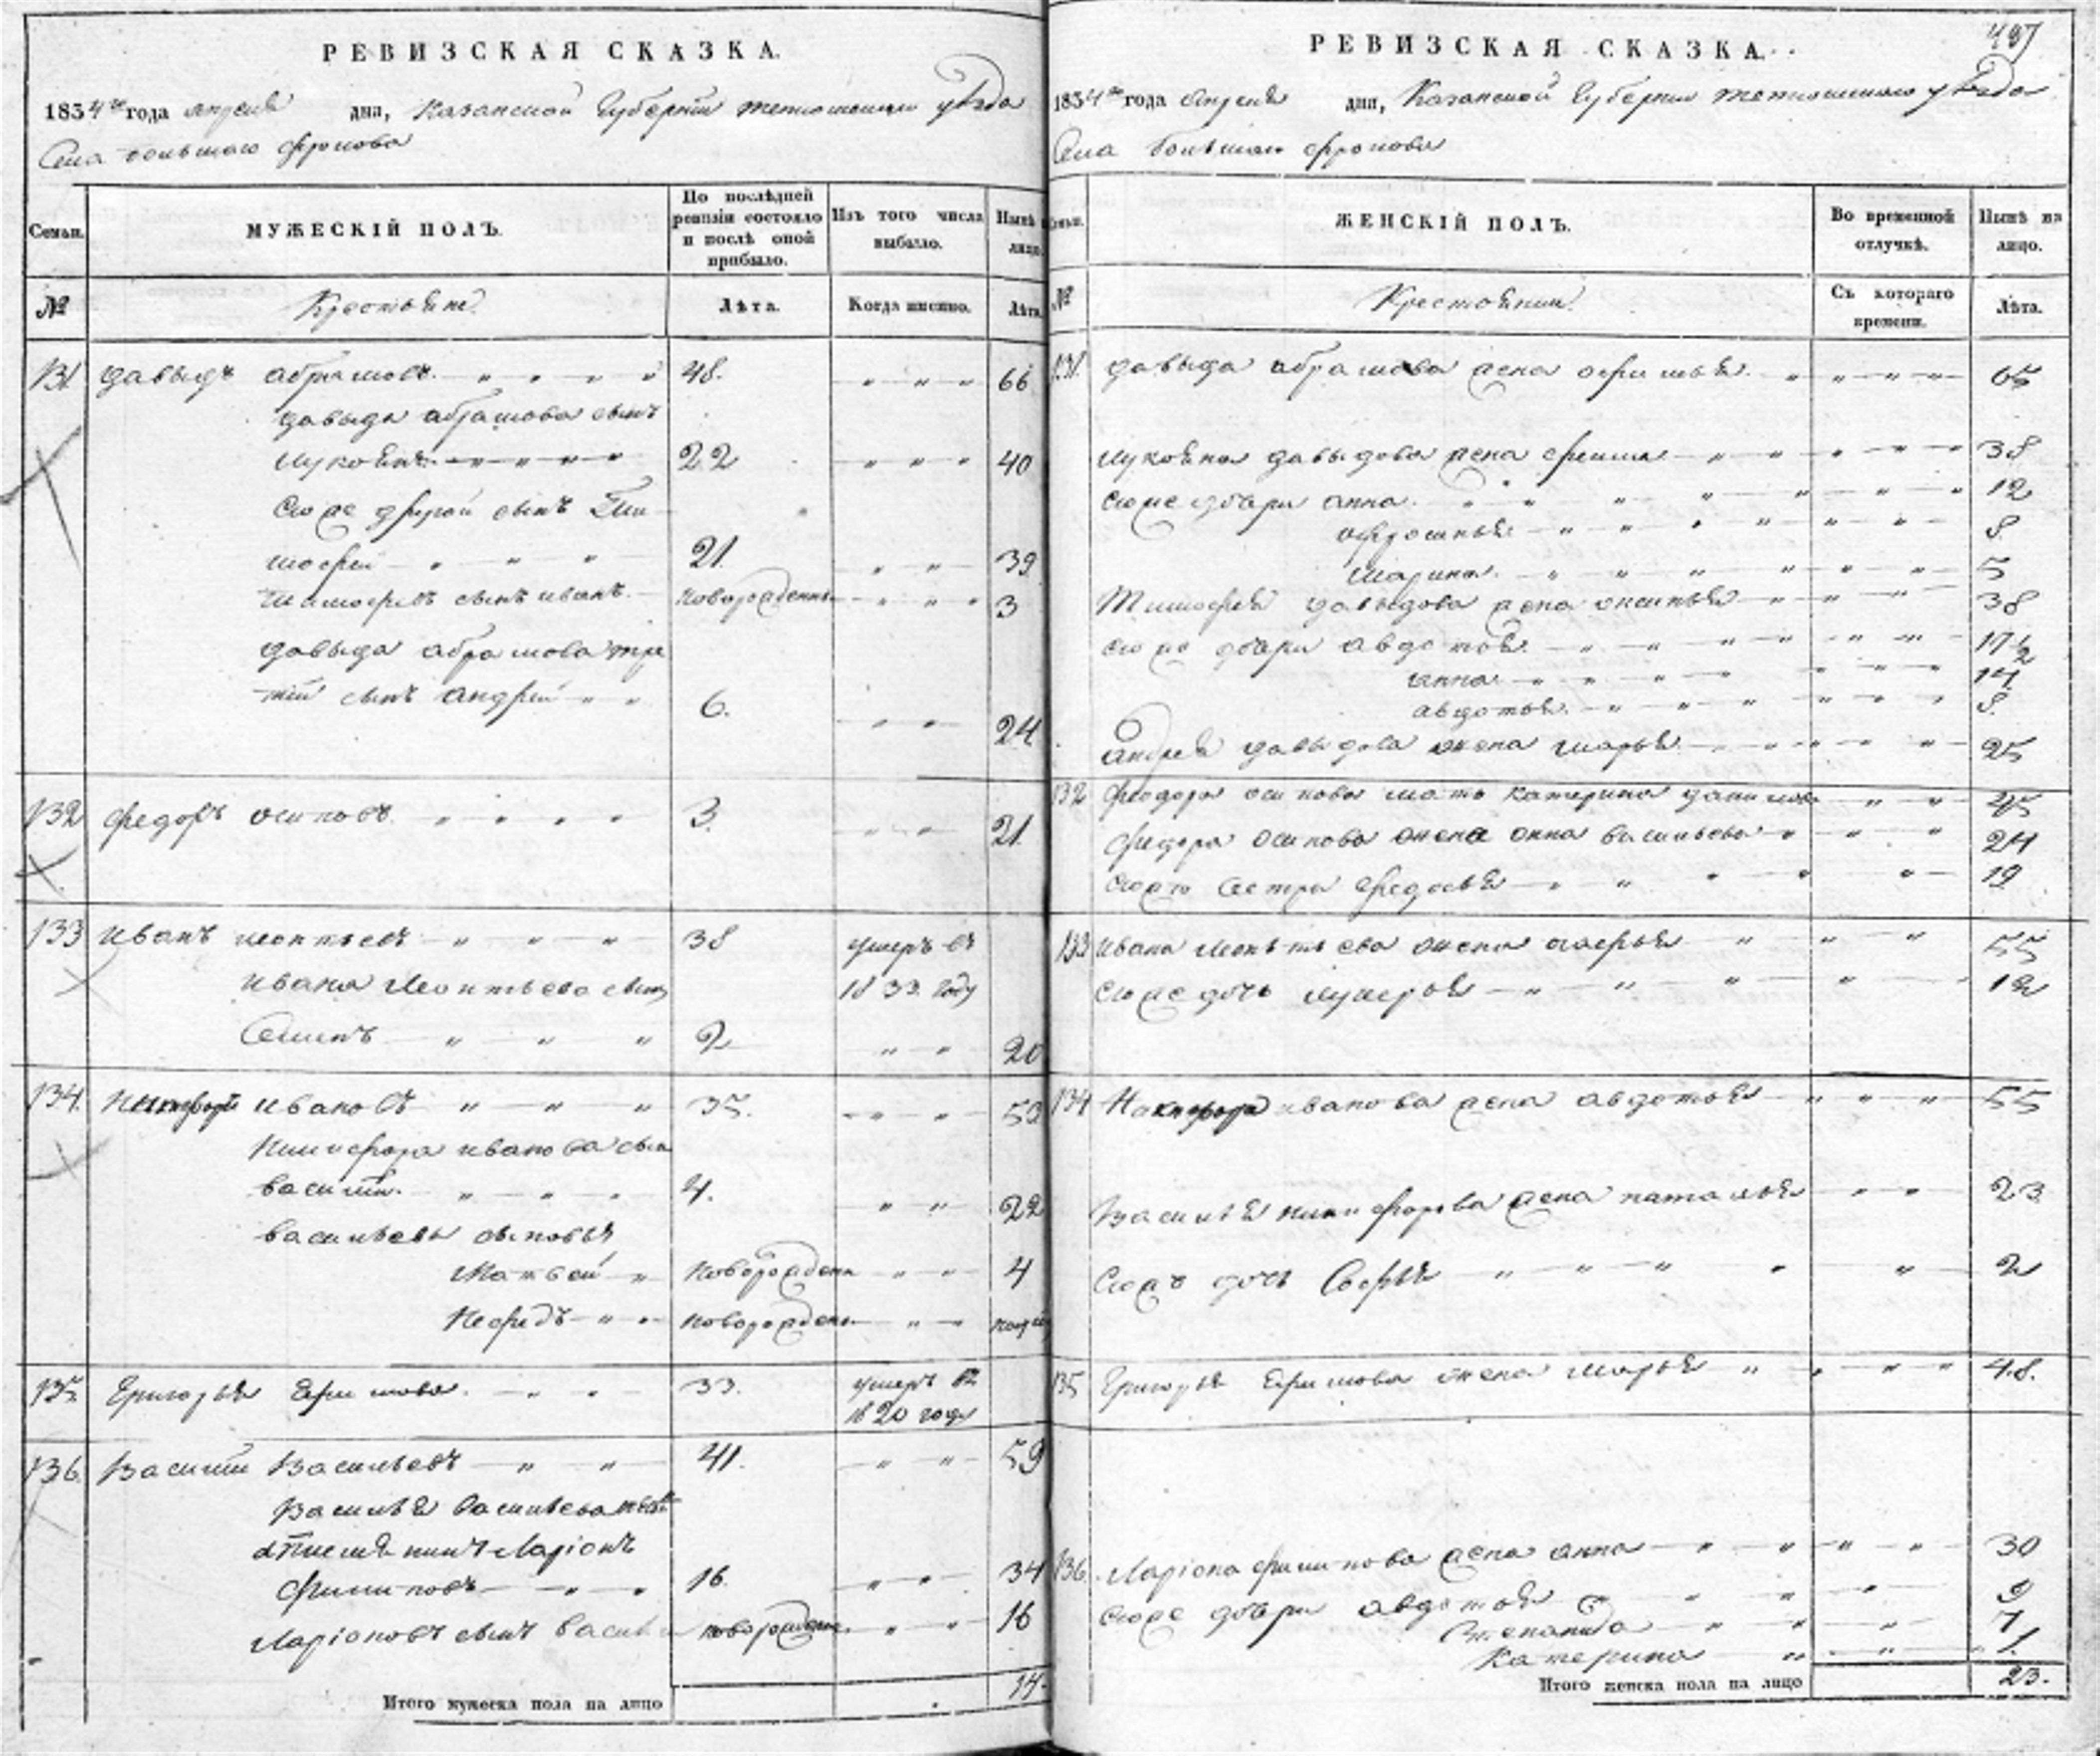 РЕВИЗСКАЯ СКАЗКА.
1834го года апреля дня, Казанской Губернии тетюшского уезда
Села большаго фролова
Семьи.
МУЖЕСКІЙ ПОЛЪ.
По послѣдней ревизіи состояло и послѣ оной прибыло.
Изъ того числа выбыло.
Нынѣ на лицо.
№
Крестьяне
Лѣта.
Когда именно.
Лѣта.
131 давыдъ абрамовъ. 48. 66
давыда абрамова сынъ
лукоянъ 22 40
Ево же другой сынъ Ти
мофей 21. 39
тимофеевъ сынъ иванъ. новорожденны 3
давыда абрамова тре
тий сынъ андрей 6. 24
132 федоръ осиповъ. 3. 21.
133 иванъ леонтьевъ 38 умеръ въ
ивана леонтьева сынъ 1833. году
Семенъ 2 20
134. никифоръ ивановъ 35. 53
никифора иванова сына
василий. 4. 22
васильевы сыновья
Матвей новорожден 4
Нефедъ новорожден
135 Григорья Ефимова. 33. умеръ въ
1820 году
136. Василий Васильевъ 41. 59
Василья васильева
Ларіонъ
филиповъ 16. 34
Ларіоновъ сынъ васил новорожден 16
Итого мужеска пола на лицо 14.
497
РЕВИЗСКАЯ СКАЗКА.
1834го года апреля дня, Казанской Губернии тетюшского уезда
Села большаго фролова
Семьи.
ЖЕНСКІЙ ПОЛЪ.
Во временной отлучкѣ.
Нынѣ на лицо.
№
Крестьянки.
Съ котораго времени.
Лѣта.
131. давыда абрамова жена афимья. 65
лукояна давыдова жена 38
Ево же дочери анна. 12
афросинья 8.
марина. 5
Тимофея давыдова жена аксинья 38
ево же дочери авдотья 17½
анна 14
авдотья. 8.
андрея давыдова жена марья 25
132 феодора осипова мать катерина данилова 45
федора осипова жена анна васильева 24
сестра федосья 19
133 ивана леонтьева жена 55
Ево же дочь лукерья 12
134 Никифора иванова жена авдотья 55
Василья никифорова жена наталья 23
Ево же дочь Софья 2
135 Григорья Ефимова жена Марья 48.
136. Ларіона филипова жена анна 30
Ево же дочери авдотья 9
Степанида 7
Катерина 1.
Итого женска пола на лицо 23.